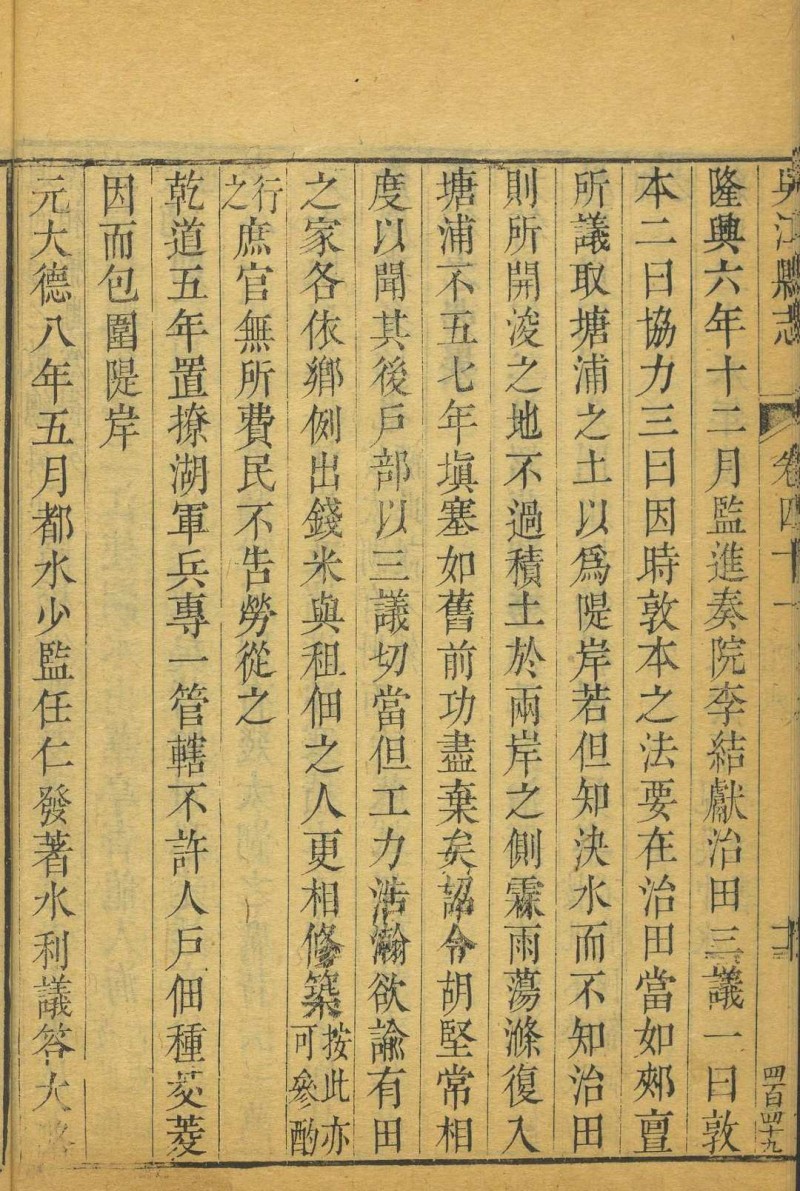 吳江縣志 卷四十一 四百四十九
隆興六年十二月監進奏院李結獻治田三議一曰敦
本二曰協力三曰因時敦本之法要在治田當如郟亶
所議取塘浦之土以爲隄岸若但知決水而不知治田
則所開浚之地不過積土於兩岸之側霖雨蕩滌復入
塘浦不五七年塡塞如舊前功盡棄矣詔令胡堅常相
度以聞其後戶部以三議切當但工力浩瀚欲諭有田
之家各依鄉例出錢米與租佃之人更相修築按此亦可參酌
行之庶官無所費民不告勞從之
乾道五年置撩湖軍兵專一管轄不許人戶佃種茭菱
因而包圍隄岸
元大德八年五月都水少監任仁發著水利議答大